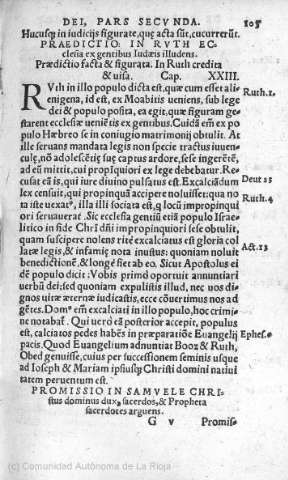 DEI, PARS SECVNDA. 105
Hucusq; in iudicijs figurate, que acta sūt, cucurrerūt.
PRAEDICTIO IN RVTH EC
clesia ex gentibus Iudæis illudens.
Prædictio facta & figurata. In Ruth credita
& uisa. Cap. XXIII.
RVth in illo populo dicta est, quæ cum esset ali-
enigena, id est, ex Moabitis ueniens, sub lege Ruth.1.
dei & populo posita, ea egit, quæ figuram ge-
starent ecclesiæ uenientis ex gentibus. Cuidā em̄ ex po
pulo Hæbreo se in coniugio matrimonij obtulit. At
ille seruans mandata legis non specie tractus iuuen-
culę, nō adolescētię suę captus ardore, sese ingerētē,
ad eū mittit, cui propīquiori ex lege debebatur. Re-
cusat eā is, qui iure diuino pulsatus est. Excalciādum Deut 25
lex censuit, qui propinquā accipere noluisset: qua no Ruth.4
ta iste uexatꝰ, illa illi sociata est, q locū impropinqui
ori seruauerat. Sic ecclesia gentiū etiā populo Israe-
litico in fide Chri dn̄i impropinquiori sese obtulit,
quam suscipere nolens rite excalciatus est gloria col
latæ legis, & infamię nota inustus: quoniam noluit Act.13
benedictionē & longe fiet ab eo. Sicut Apostolus ei
dē populo dicit: Vobis primū oportuit annuntiari
uerbū dei: sed quoniam expulistis illud, nec uos di-
gnos uitæ æternæ iudicastis, ecce cōuertimus nos ad
gētes. Domꝰ em̄ excalciati in illo populo, hoc crimi-
ne notabaꝉ. Qui uero eā posterior accepit, populus
est, calciatos pedes habēs in præparatiōe Euangelij Ephes.
pacis. Quod Euangelium adnuntiat Booz & Ruth,
Obed genuisse, cuius per successionem seminis usque
ad Ioseph & Mariam ipsiusq; Christi domini natiui
tatem peruentum est.
PROMISSIO IN SAMVELE CHRI
stus dominus dux, sacerdos, & Propheta
sacerdotes arguens.
G v Promis-
(c) Comunidad Autónoma de La Rioja